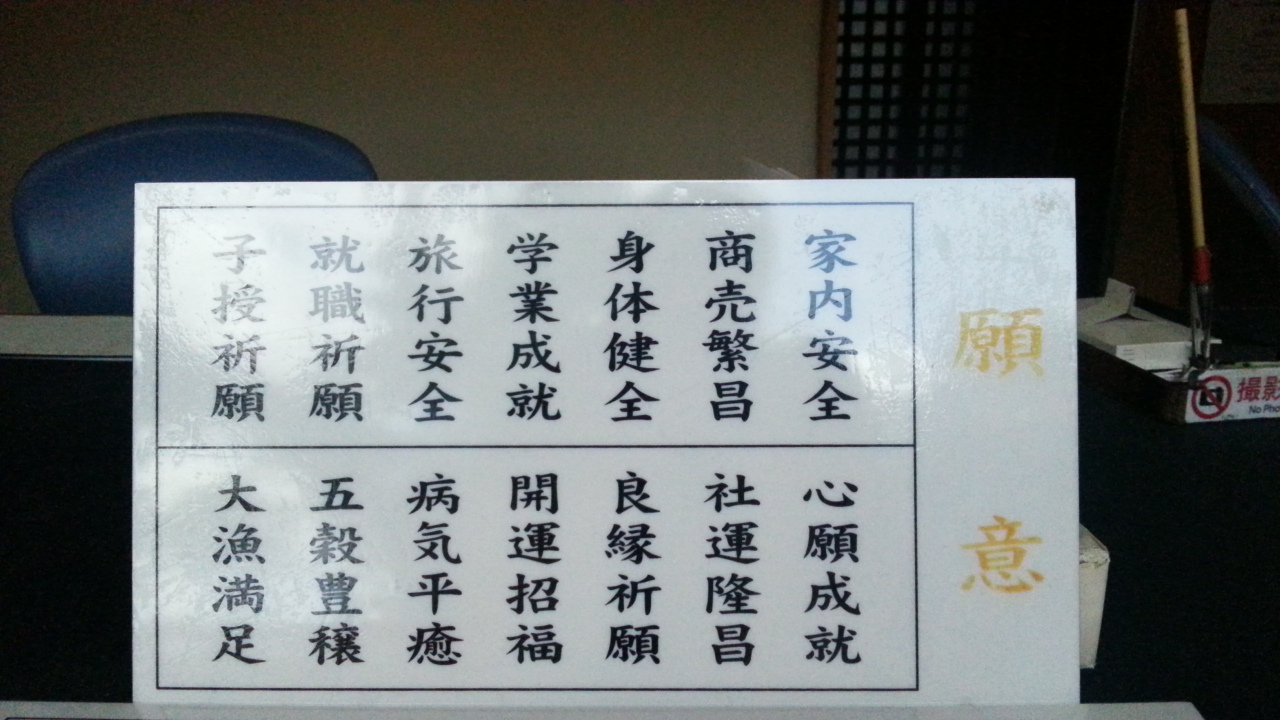 願意
家内安全
商売繁昌
身体健全
学業成就
旅行安全
就職祈願
子授祈願
心願成就
社運隆昌
良縁祈願
開運招福
病気平癒
五穀豊穣
大漁満足
撮影
No Pho